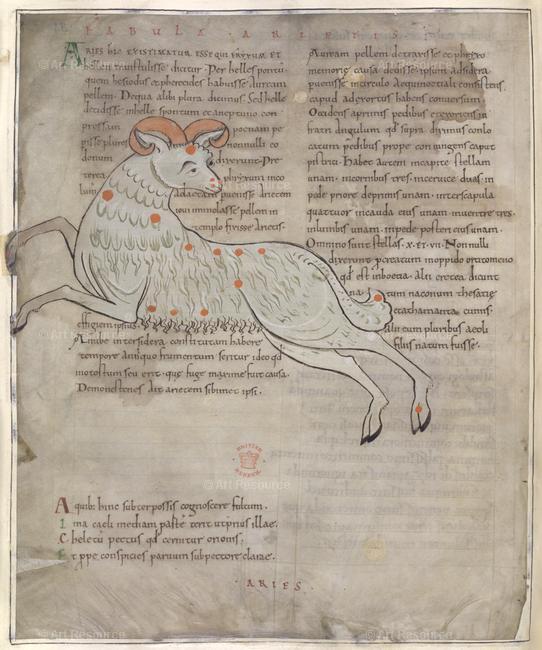 FABULA ARIETIS
ARIES HIC EXISTIMATUR ESSE QUI FRYXUM ET
hellen transtulisse dicitur. Per helles pontu
quem hesiodus et pherecides habuisse auream
pellem. De qua alibi plura dicimus. Sed helle
decidisse in helle spontum et a neptuno con
pressam
pocnam pe
pisse plures
nonnulli eo
donum
dixerunt. Pre
terea
phryxum inco
lum
adaetam
arietem
ioui immolasse pellem in
templo fixisse. Arietis
effigiem ipsius
A nube inter sidera constitutam habere
tempore anni quo frumentum seritur ideo qd
motostum seu erit. que fuge maxime fuit causa.
Demostenes ait arietem sibi
ipsi.
Auream pellem detraxisse et phrixo
memorie causa dedisse. ipsum ad sidera
peruenisse. In circulo aequinoctiali consistens.
caput ad exortus habens conuersum.
Occidens a primis pedibus et exoriens in
fra triangulum qd supra diximus conlo
catum pedibus prope contingens caput
pistricis. Habet autem in capite stellam
unam. in cornibus tres. in ceruice duas. in
pede priore de primis unam. inter scapula
quattuor. in cauda eius unam. in uentre tres.
in lumbis unam. in pede posteriori unam.
Omnino sunt stellae. x. et. vii. Nonnulli
dixerunt
in oppido orcomeno
qd est in boetia. alii eretea dicunt
na
tum
thesalie
cathamanta
cumis.
alii cum pluribus aeoli
filius natum fuisse.
BRITISH
MUSEUM
A quib; hinc subter possis cognoscere fultum.
I ma caeli mediam partem terit ut prius illae.
C heletum pectus qd cernitur orionis.
E t prope conspicies paruum sub pectore clarae.
ARIES
© Art Resource
© Art Resource
© Art Resource
© Art Resource
© Art Resource
© Art Resource
© Art Resource